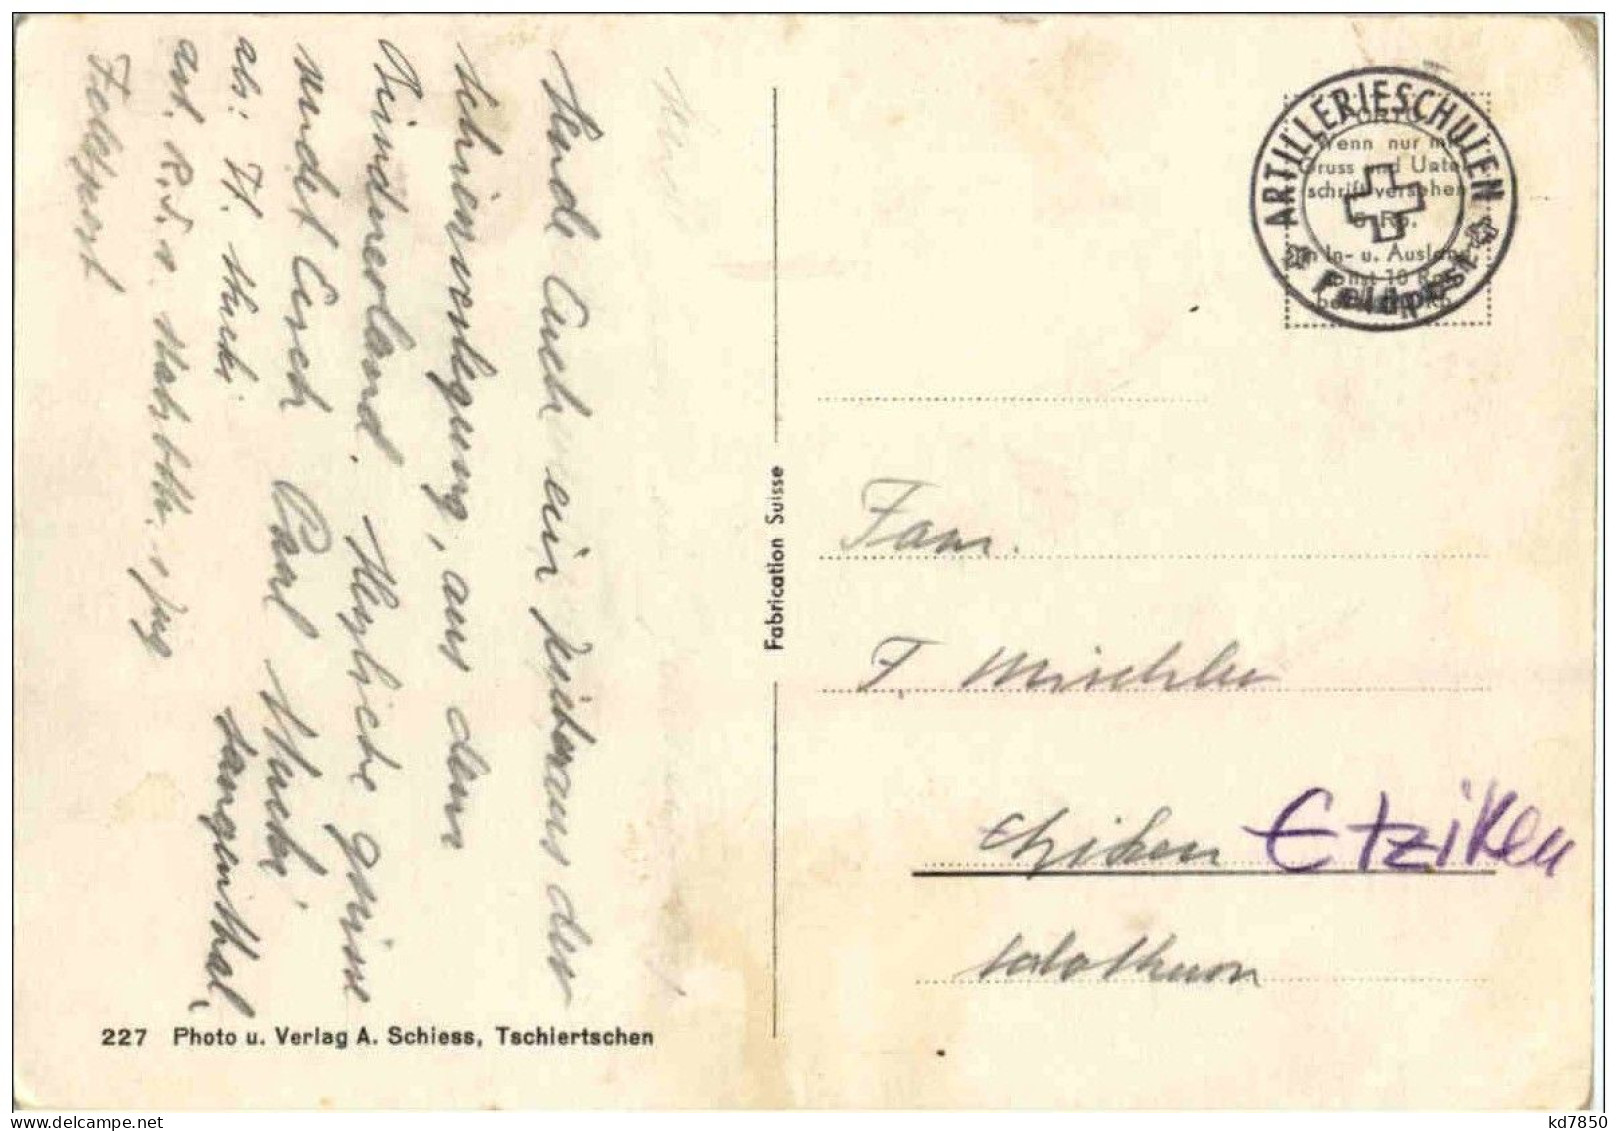 Sende Euch ein aus der
schiessverlegung, aus dem
Bündnerland. Herzliche grüsse
sendet Euch Paul Stucki
Langenthal,
ab: Ft. Stucki
art. R.S. v.
Feldpost
227 Photo u. Verlag A. Schiess, Tschiertschen
Fabrication Suisse
ARTILLERIESCHULEN
Feldpost
PORTO
Wenn nur mit
Gruss und Unter
schrift versehen
5 Rp.
im In- u. Ausland
sonst 10 Rp.
Fam.
F. Mischler
Etziken Etziken
Solothurn
kd7850